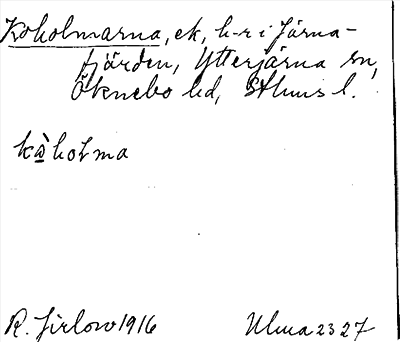 Koholmarna, ek, h-r i Järna-
fjärden, Ytterjärna sn,
Öknebo hd, Sthms l.
kȯ̀holma
R. Jirlow 1916 Ulma 23 27